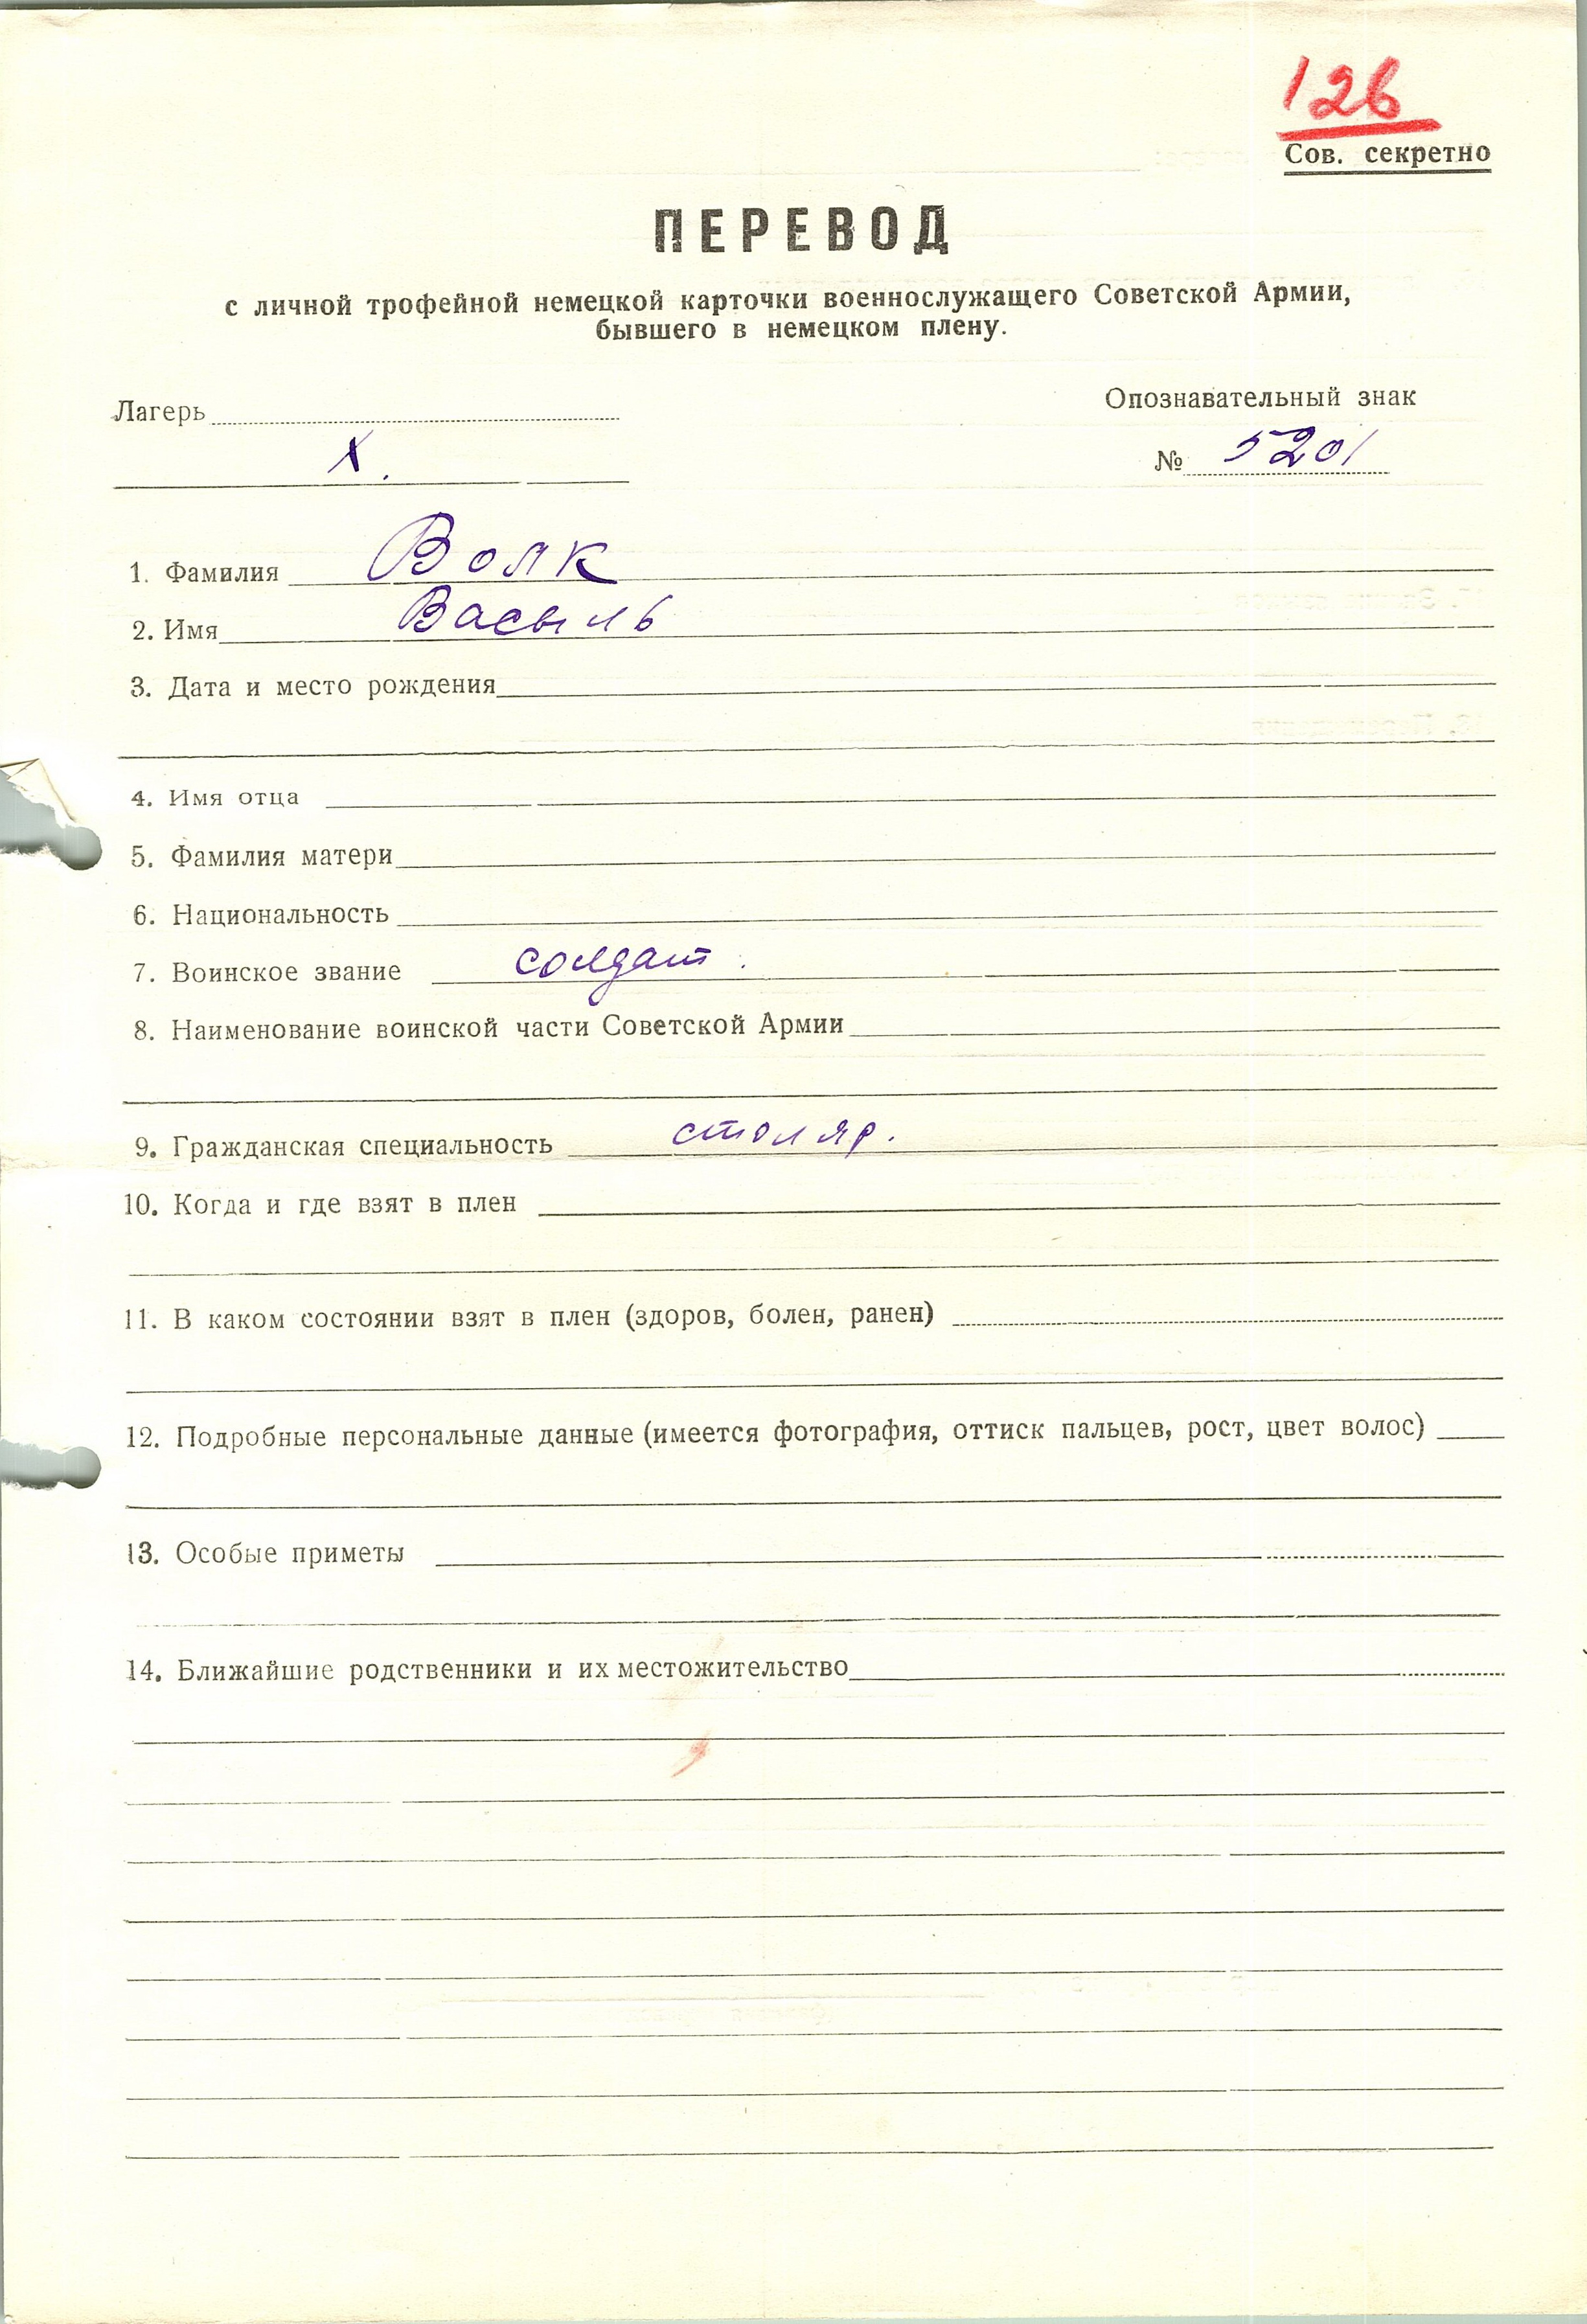 126
Сов. секретно
ПЕРЕВОД
с личной трофейной немецкой карточки военнослужащего Советской Армии,
бывшего в немецком плену.
Лагерь
Опознавательный знак
X.
№ 5201
1. Фамилия Волк
2. Имя Васыль
3. Дата и место рождения
4. Имя отца
5. Фамилия матери
6. Национальность
7. Воинское звание солдат.
8. Наименование воинской части Советской Армии
9. Гражданская специальность столяр.
10. Когда и где взят в плен
11. В каком состоянии взят в плен (здоров, болен, ранен)
12. Подробные персональные данные (имеется фотография, оттиск пальцев, рост, цвет волос)
13. Особые приметы
14. Ближайшие родственники и их местожительство